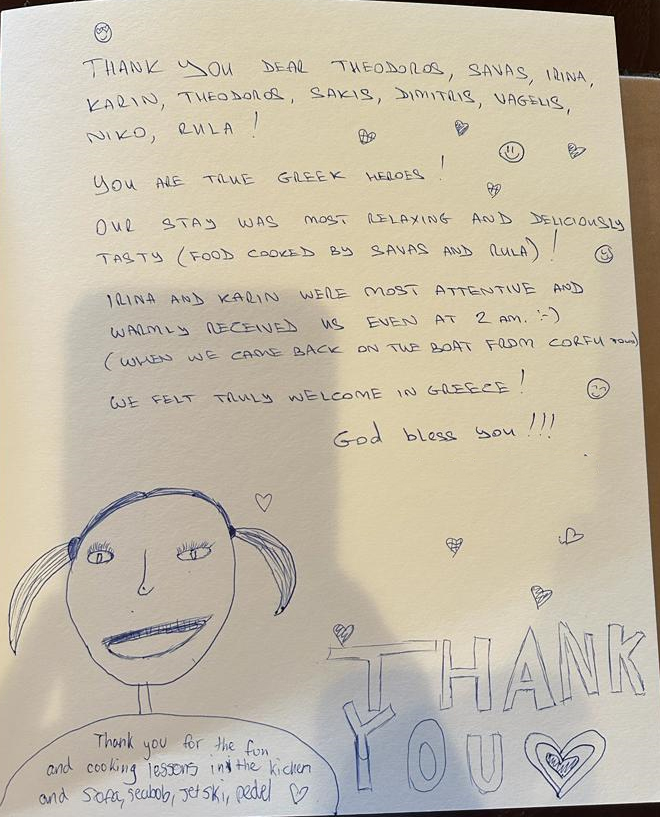 THANK YOU DEAR THEODOROS, SAVAS, IRINA,
KARIN, THEODOROS, SAKIS, DIMITRIS, VAGELIS,
NIKO, RULA!
YOU ARE TRUE GREEK HEROES!
OUR STAY WAS MOST RELAXING AND DELICIOUSLY
TASTY (FOOD COOKED BY SAVAS AND RULA)!
IRINA AND KARIN WERE MOST ATTENTIVE AND
WARMLY RECEIVED US EVEN AT 2 AM. :-)
(WHEN WE CAME BACK ON THE BOAT FROM CORFU TOWN)
WE FELT TRULY WELCOME IN GREECE!
God bless you!!!
THANK
YOU
Thank you for the fun
and cooking lessons in the kichen
and Sofa, seabob, jet ski, pedel